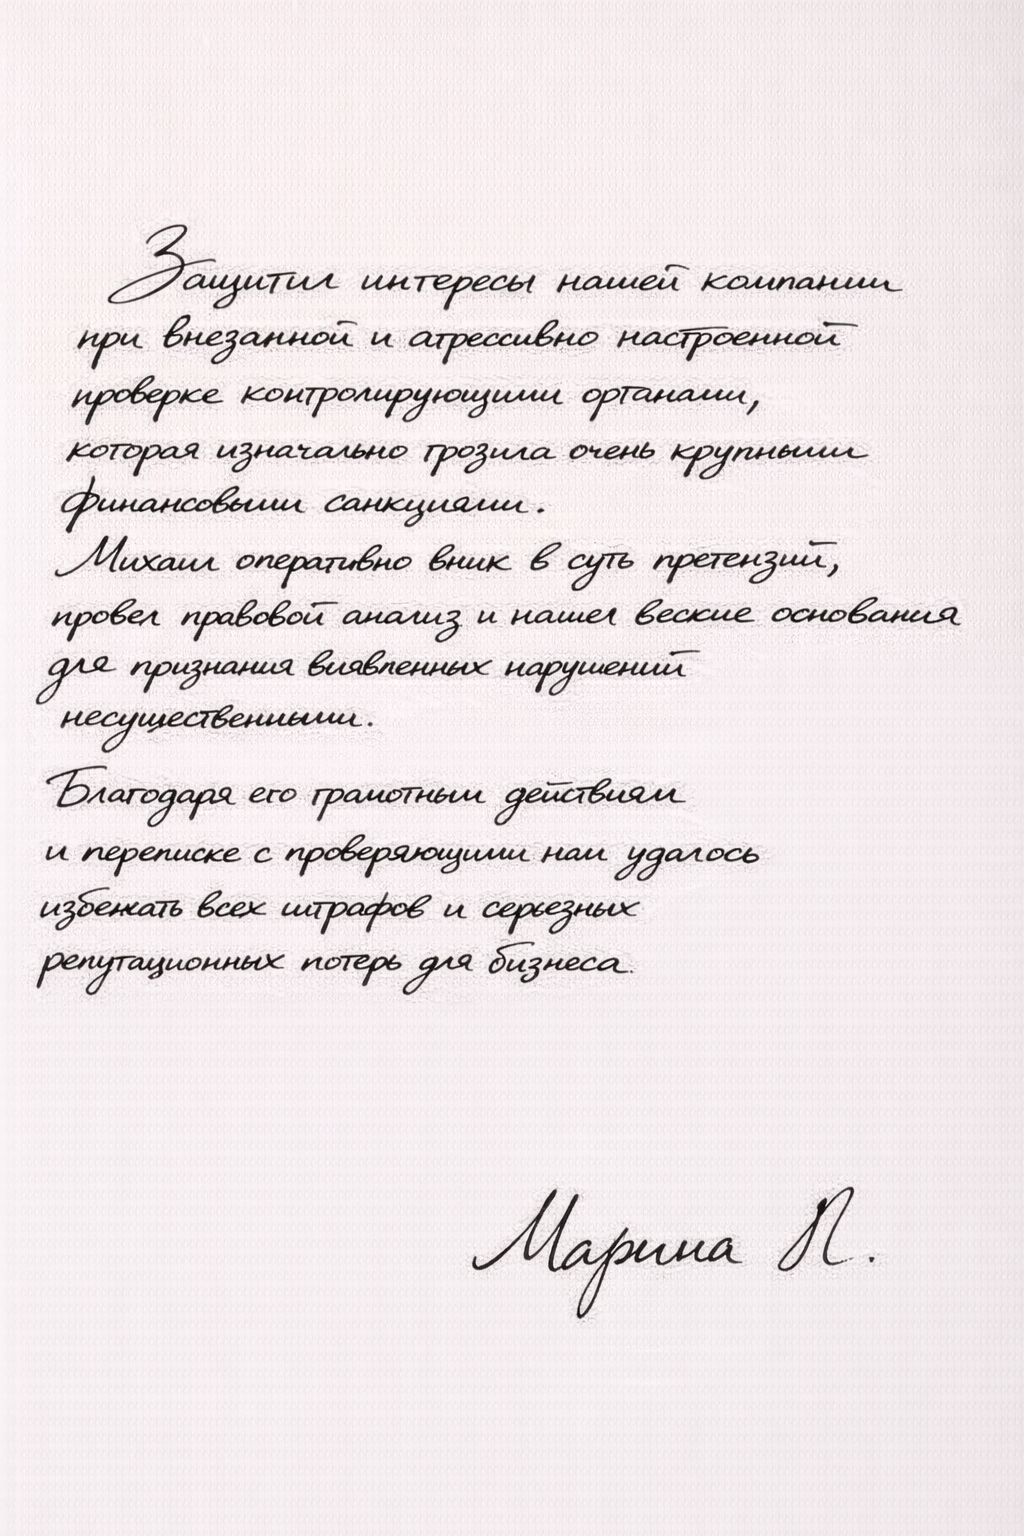 Защитил интересы нашей компании
при внезанной и агрессивно настроенной
проверке контролирующими органами,
которая изначально грозила очень крупными
финансовыми санкциями.
Михаил оперативно вник в суть претензий,
провел правовой анализ и нашел веские основания
для признания виявпенных нарушений
несущественными.
Благодаря его грамотным действиям
и переписке с проверяющими нам удалось
избежать всех штрафов и серьезных
репутационных потерь для бизнеса.
Марина П.